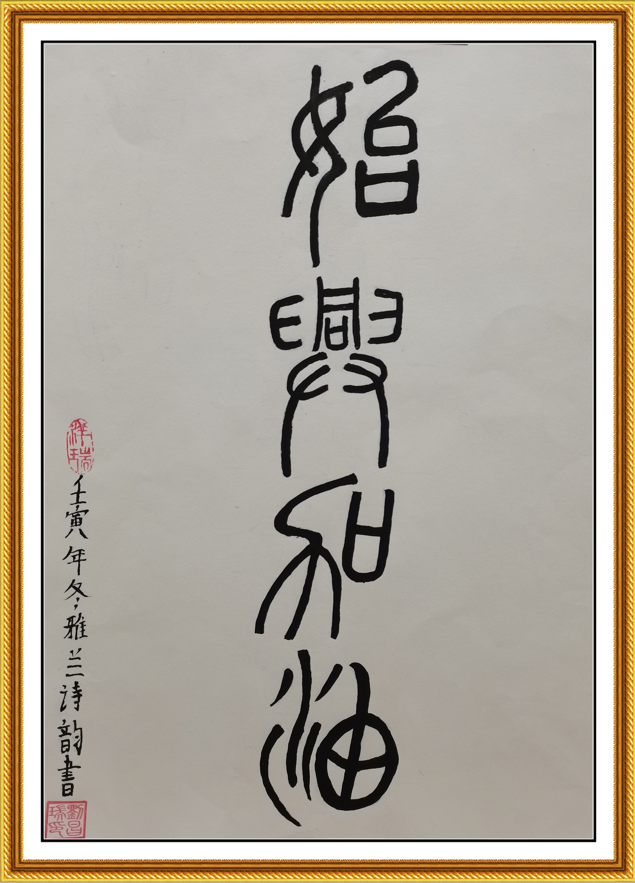 始興加油
壬寅年冬雅兰诗韵書